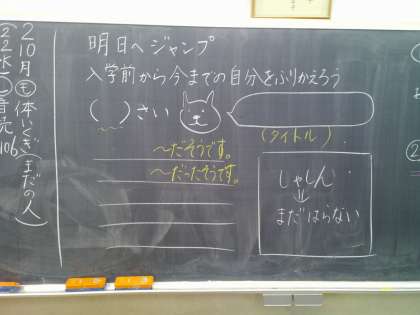 明日へジャンプ
入学前から今までの自分をふりかえろう
( )さい
(タイトル)
〜だそうです。
〜だったそうです。
しゃしん
⇓
まだはらない
10月
(まだの人)
22
106
②